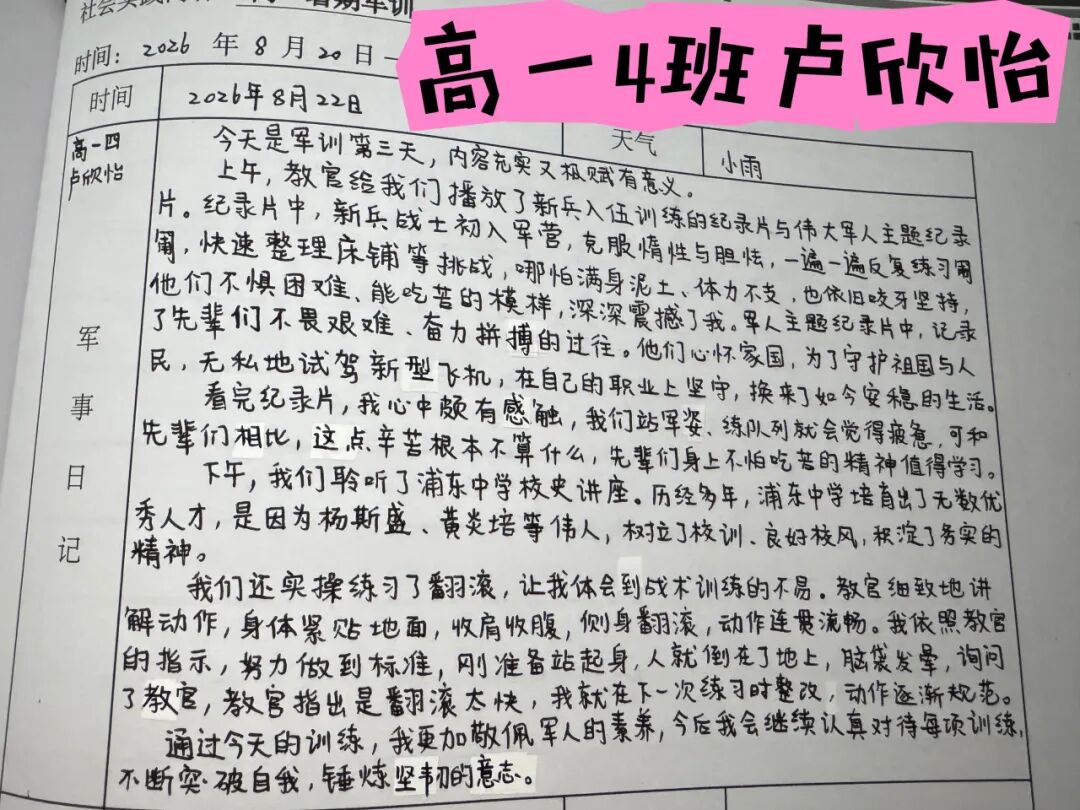 社会实践
暑期军训
时间：2026年8月20日-
高一4班卢欣怡
时间
2026年8月22日
天气
小雨
高一四
卢欣怡
军事日记
今天是军训第三天，内容充实又极赋有意义。
上午，教官给我们播放了新兵入伍训练的纪录片与伟大军人主题纪录
片。纪录片中，新兵战士初入军营，克服惰性与胆怯，一遍一遍反复练习
，快速整理床铺等挑战，哪怕满身泥土、体力不支，也依旧咬牙坚持，
他们不惧困难、能吃苦的模样，深深震撼了我。军人主题纪录片中，记录
了先辈们不畏艰难、奋力拼搏的过往。他们心怀家国，为了守护祖国与人
民，无私地试驾新型飞机，在自己的职业上坚守，换来了如今安稳的生活。
看完纪录片，我心中颇有感触，我们站军姿、练队列就会觉得疲惫，可和
先辈们相比，这点辛苦根本不算什么，先辈们身上不怕吃苦的精神值得学习。
下午，我们聆听了浦东中学校史讲座。历经多年，浦东中学培育出了无数优
秀人才，是因为杨斯盛、黄炎培等伟人，树立了校训、良好校风，积淀了务实的
精神。
我们还实操练习了翻滚，让我体会到战术训练的不易。教官细致地讲
解动作，身体紧贴地面，收肩收腹，侧身翻滚，动作连贯流畅。我依照教官
的指示，努力做到标准，刚准备站起身，人就倒在了地上，脑袋发晕，询问
了教官，教官指出是翻滚太快，我就在下一次练习时整改，动作逐渐规范。
通过今天的训练，我更加敬佩军人的素养，今后我会继续认真对待每项训练，
不断突破自我，锤炼坚韧的意志。